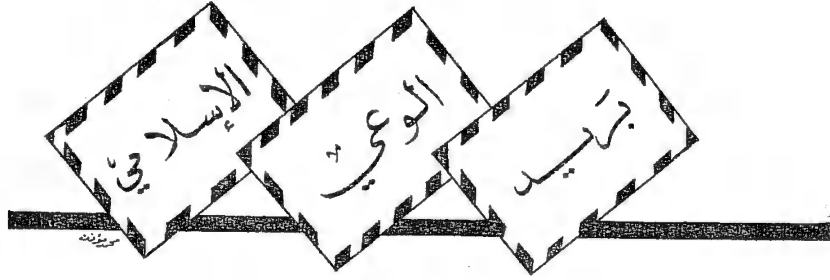 بَريد الوعي الإسلاميّ